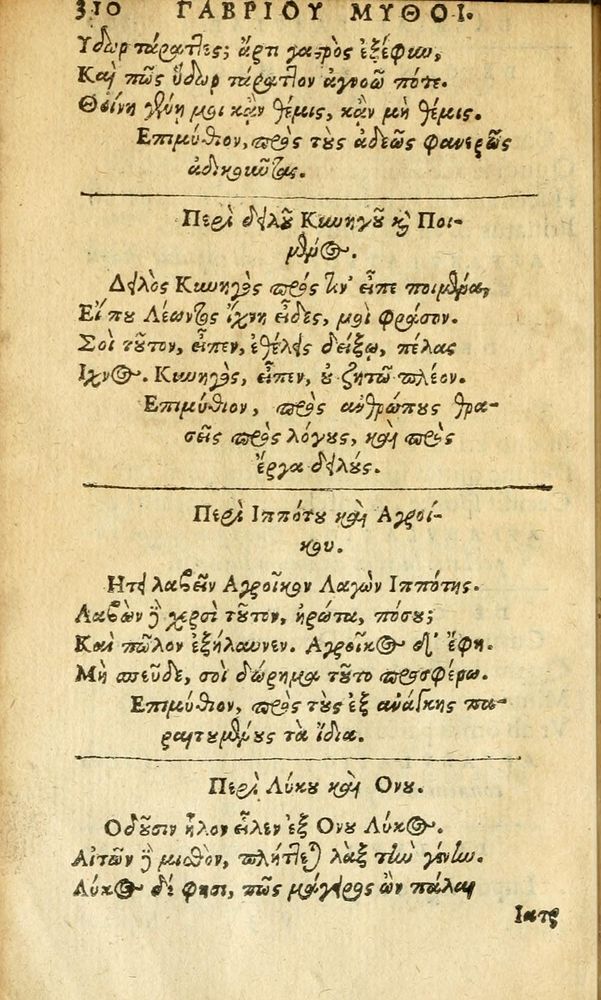 310 ΓΑΒΡΙΟΥ ΜΥΘΟΙ.
Υδωρ τάραττες; ἄρτι γαςρὸς ἐξέφυν,
Καὶ πῶς ὕδωρ τάραττον ἀγνοῶ πότε.
Θοίνη γένη μοι κἂν θέμις, κἂν μὴ θέμις.
Επιμύθιον, πρὸς τοὺς ἀδεῶς φανερῶς
ἀδικοῦντας.
Περὶ δειλοῦ Κυνηγοῦ καὶ Ποι-
μένος.
Δειλὸς Κυνηγὸς πρός τιν' εἶπε ποιμένα,
Εἴ που Λέοντος ἴχνη εἶδες, μοὶ φράσον.
Σοὶ τοῦτον, εἶπεν, ἐθέλεις δείξω, πέλας
Ιχνος. Κυνηγὸς, εἶπεν, οὐ ζητῶ πλέον.
Επιμύθιον, πρὸς ἀνθρώπους θρα-
σεῖς πρὸς λόγους, καὶ πρὸς
ἔργα δειλούς.
Περὶ Ιππότου καὶ Αγροί-
κου.
Ητει λαβεῖν Αγροῖκον Λαγὼν Ιππότης.
Λαβὼν δὲ χερσὶ τοῦτον, ἠρώτα, πόσου;
Καὶ πῶλον ἐξήλαυνεν. Αγροῖκος δ' ἔφη.
Μὴ σπεῦδε, σοὶ δώρημα τοῦτο προσφέρω.
Επιμύθιον, πρὸς τοὺς ἐξ ἀνάγκης πα-
ραιτουμένους τὰ ἴδια.
Περὶ Λύκου καὶ Ονου.
Οδοῦσιν ἧλον εἷλεν ἐξ Ονου Λύκος.
Αἰτῶν δὲ μισθὸν, πλήττεται λὰξ τὴν γένυν.
Λύκος δέ φησι, πῶς μάγειρος ὢν πάλαι
Ιατρ